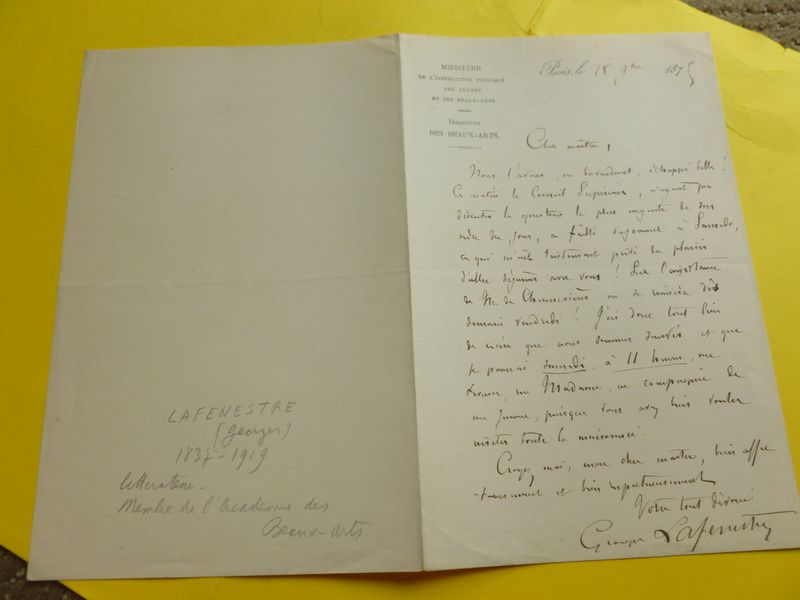 LAFENESTRE
(Georges)
1837-1919
littérateur.
Membre de l'Académie des
Beaux-Arts
MINISTÈRE
DE L'INSTRUCTION PUBLIQUE
DES CULTES
ET DES BEAUX-ARTS
DIRECTION
DES BEAUX-ARTS.
Paris, le 18 9bre 1875
Cher maître,
Nous l'avons, en bavardant, échappé belle !
Ce matin le Conseil Supérieur, n'ayant pu
discuter la question la plus urgente de son
ordre du jour, a failli s'ajourner à Samedi,
ce qui m'eût tristement privé du plaisir
d'aller déjeuner avec vous ! Sur l'insistance
de M. de Chennevières on se réunira dès
demain vendredi ! J'ai donc tout lieu
de croire que nous sommes sauvés et que
je pourrai samedi, à 11 heures, me
trouver, chez Madame, en compagnie de
ma femme, puisque vous avez bien voulu
inviter toute la maisonnée.
Croyez moi, mon cher maître, bien affec
tueusement et bien respectueusement
Votre tout dévoué
Georges Lafenestre